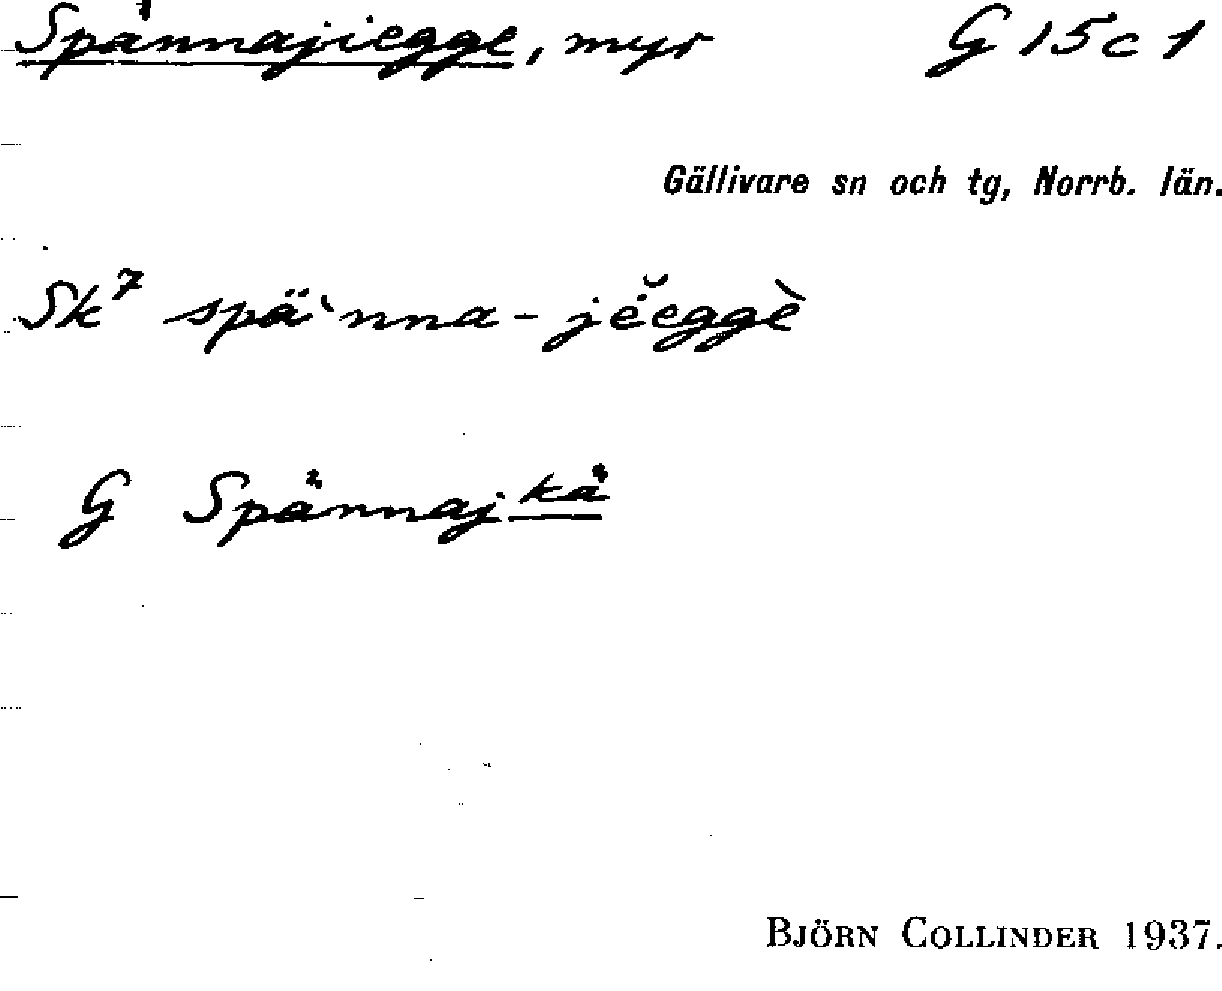 Spännajiegge, myr G 15 c 1
Gällivare sn och tg, Norrb. län.
Sk⁷ spä`nna-jĕ́eggè
G Spännajkå
BJÖRN COLLINDER 1937.